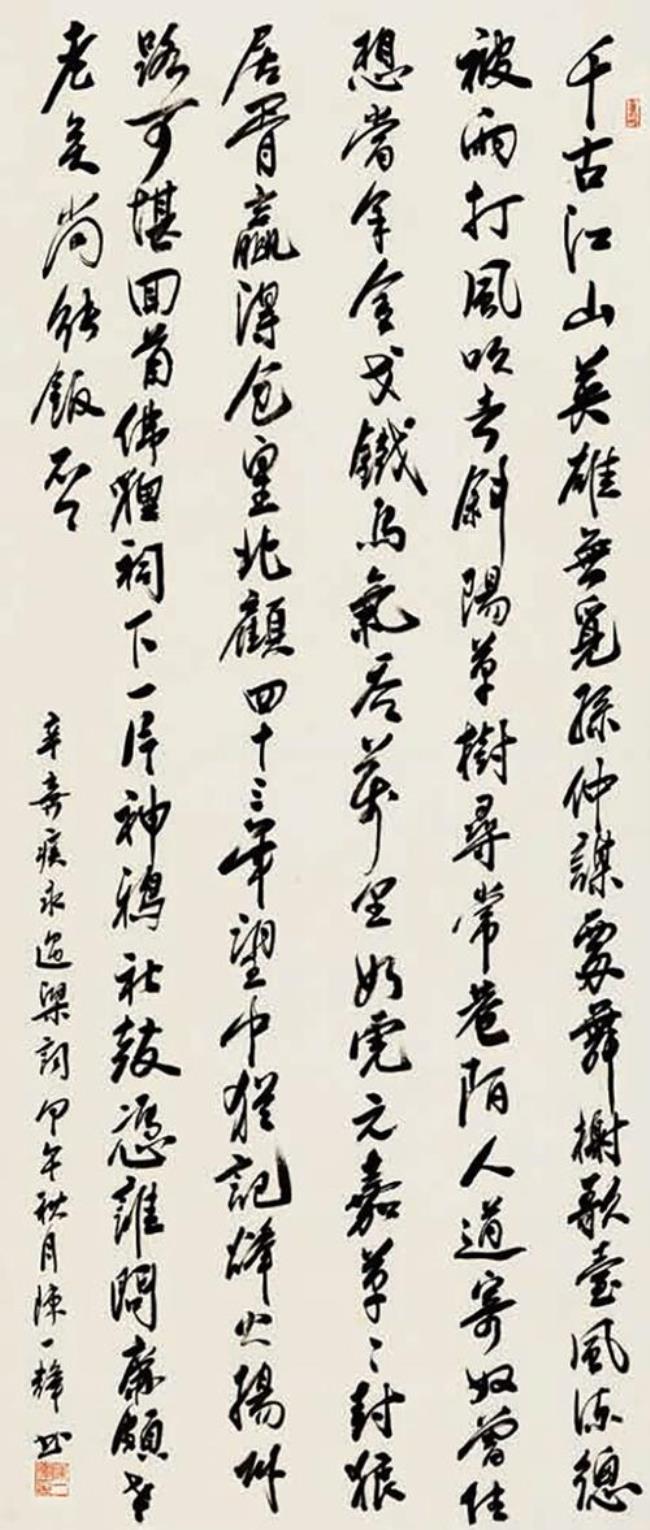 千古江山英雄無覓孫仲謀處舞榭歌臺風流總
被雨打風吹去斜陽草樹尋常巷陌人道寄奴曾住
想當年金戈鐵馬氣吞萬里如虎元嘉草〻封狼
居胥贏得倉皇北顧四十三年望中猶記烽火揚州
路可堪回首佛貍祠下一片神鴉社鼓憑誰問廉頗
老矣尚能飯否
辛棄疾永遇樂詞甲午秋月陳一輝書